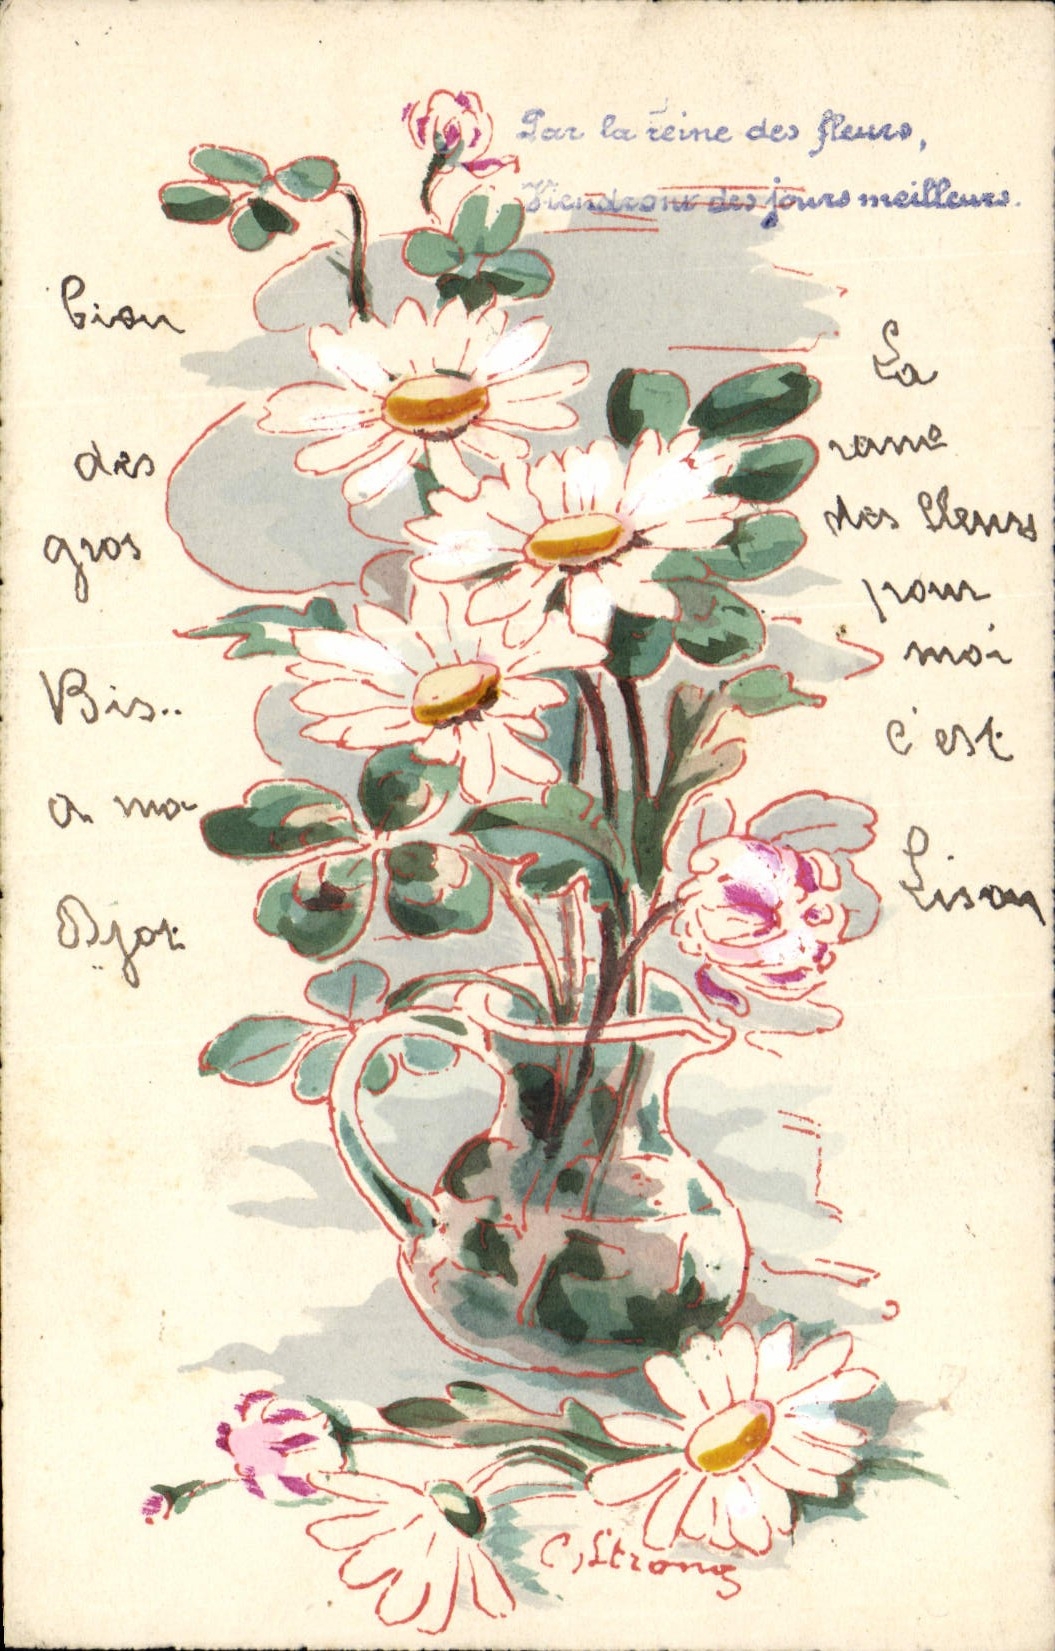 Par la reine des fleurs,
Viendront des jours meilleurs.
bien
des
gros
Bis..
a ma
La
reine
des fleurs
pour
moi
c'est
Lison
C, Strong